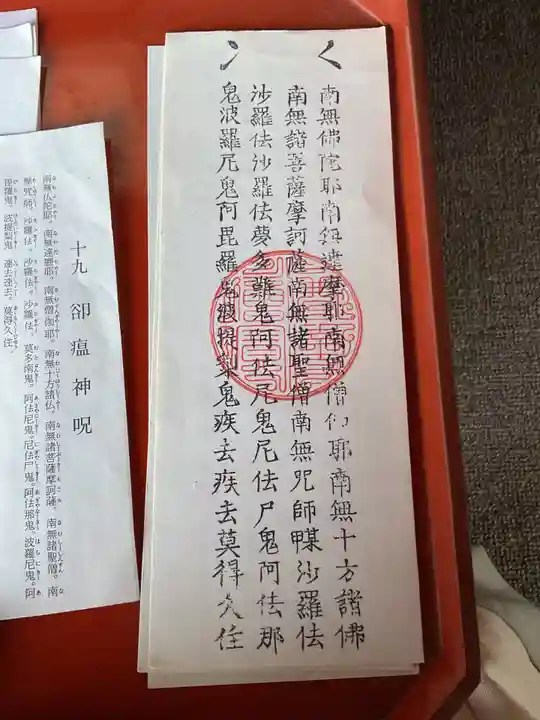 南無佛陀耶南無達摩耶南無僧伽耶南無十方諸佛
南無諸菩薩摩訶薩南無諸聖僧南無咒師䫫沙羅佉
沙羅佉沙羅佉夢多難鬼阿佉尼鬼尼佉尸鬼阿佉那
鬼波羅尼鬼阿毘羅鬼波提梨鬼疾去疾去莫得久住
十九 卻瘟神呪
南無仏陀耶。南無達磨耶。南無僧伽耶。南無十方諸仏。南無諸菩薩摩訶薩。南無諸聖僧。南
無呪師。沙羅佉。沙羅佉。沙羅佉。莫多南鬼。阿佉尼鬼。尼佉尸鬼。阿佉那鬼。波羅尼鬼。阿
毘羅鬼。波提梨鬼。速去速去。莫得久住。